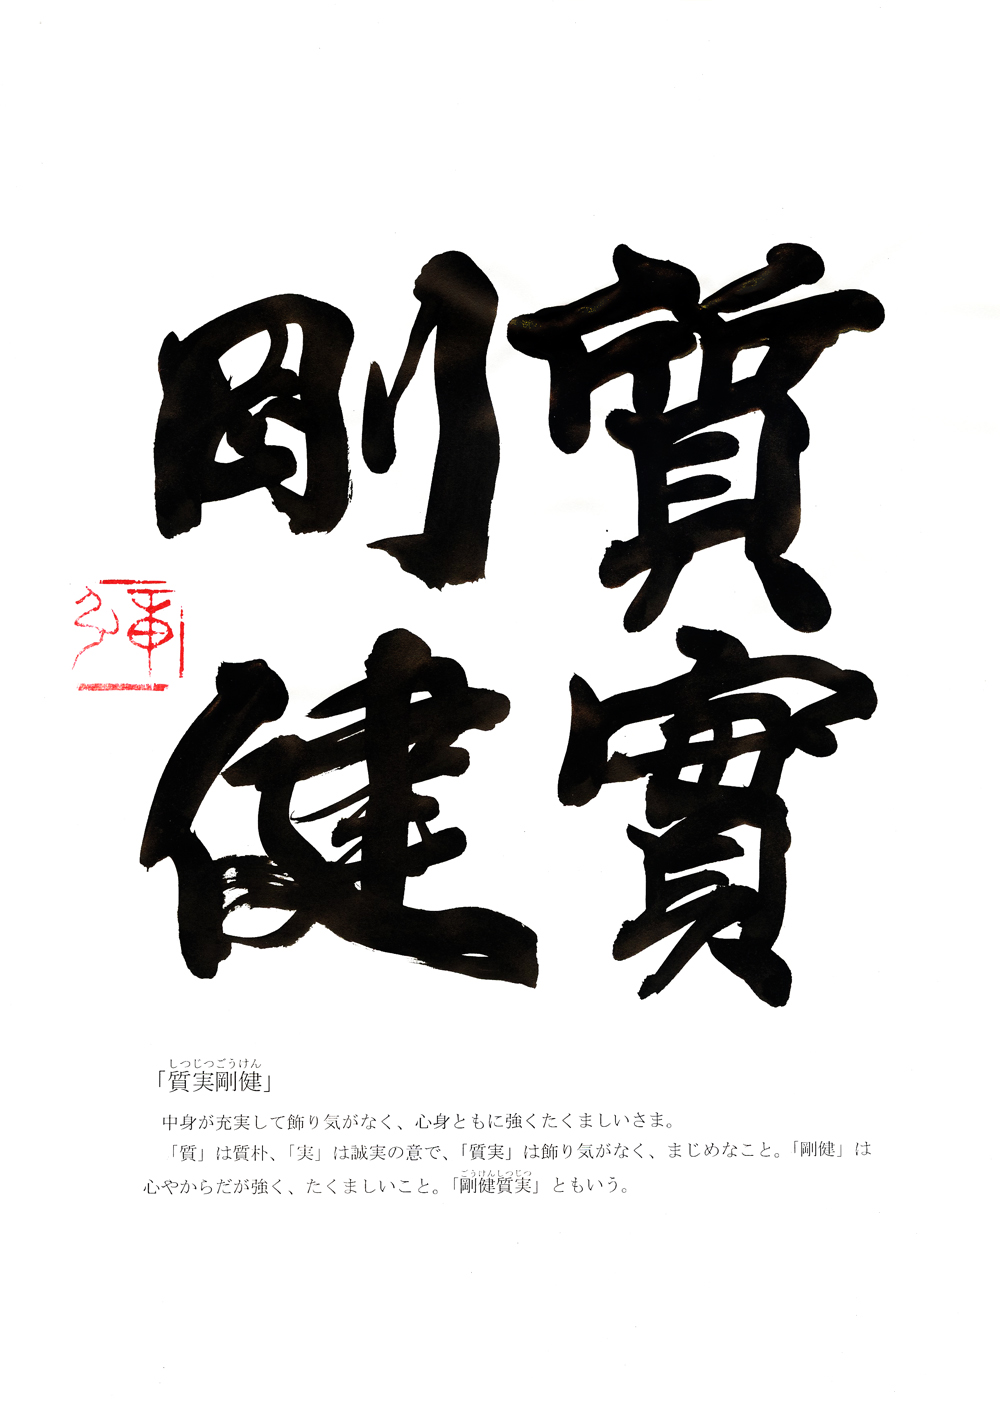 質實
剛健
しつじつごうけん
「質実剛健」
中身が充実して飾り気がなく、心身ともに強くたくましいさま。
「質」は質朴、「実」は誠実の意で、「質実」は飾り気がなく、まじめなこと。「剛健」は
ごうけんしつじつ
心やからだが強く、たくましいこと。「剛健質実」ともいう。